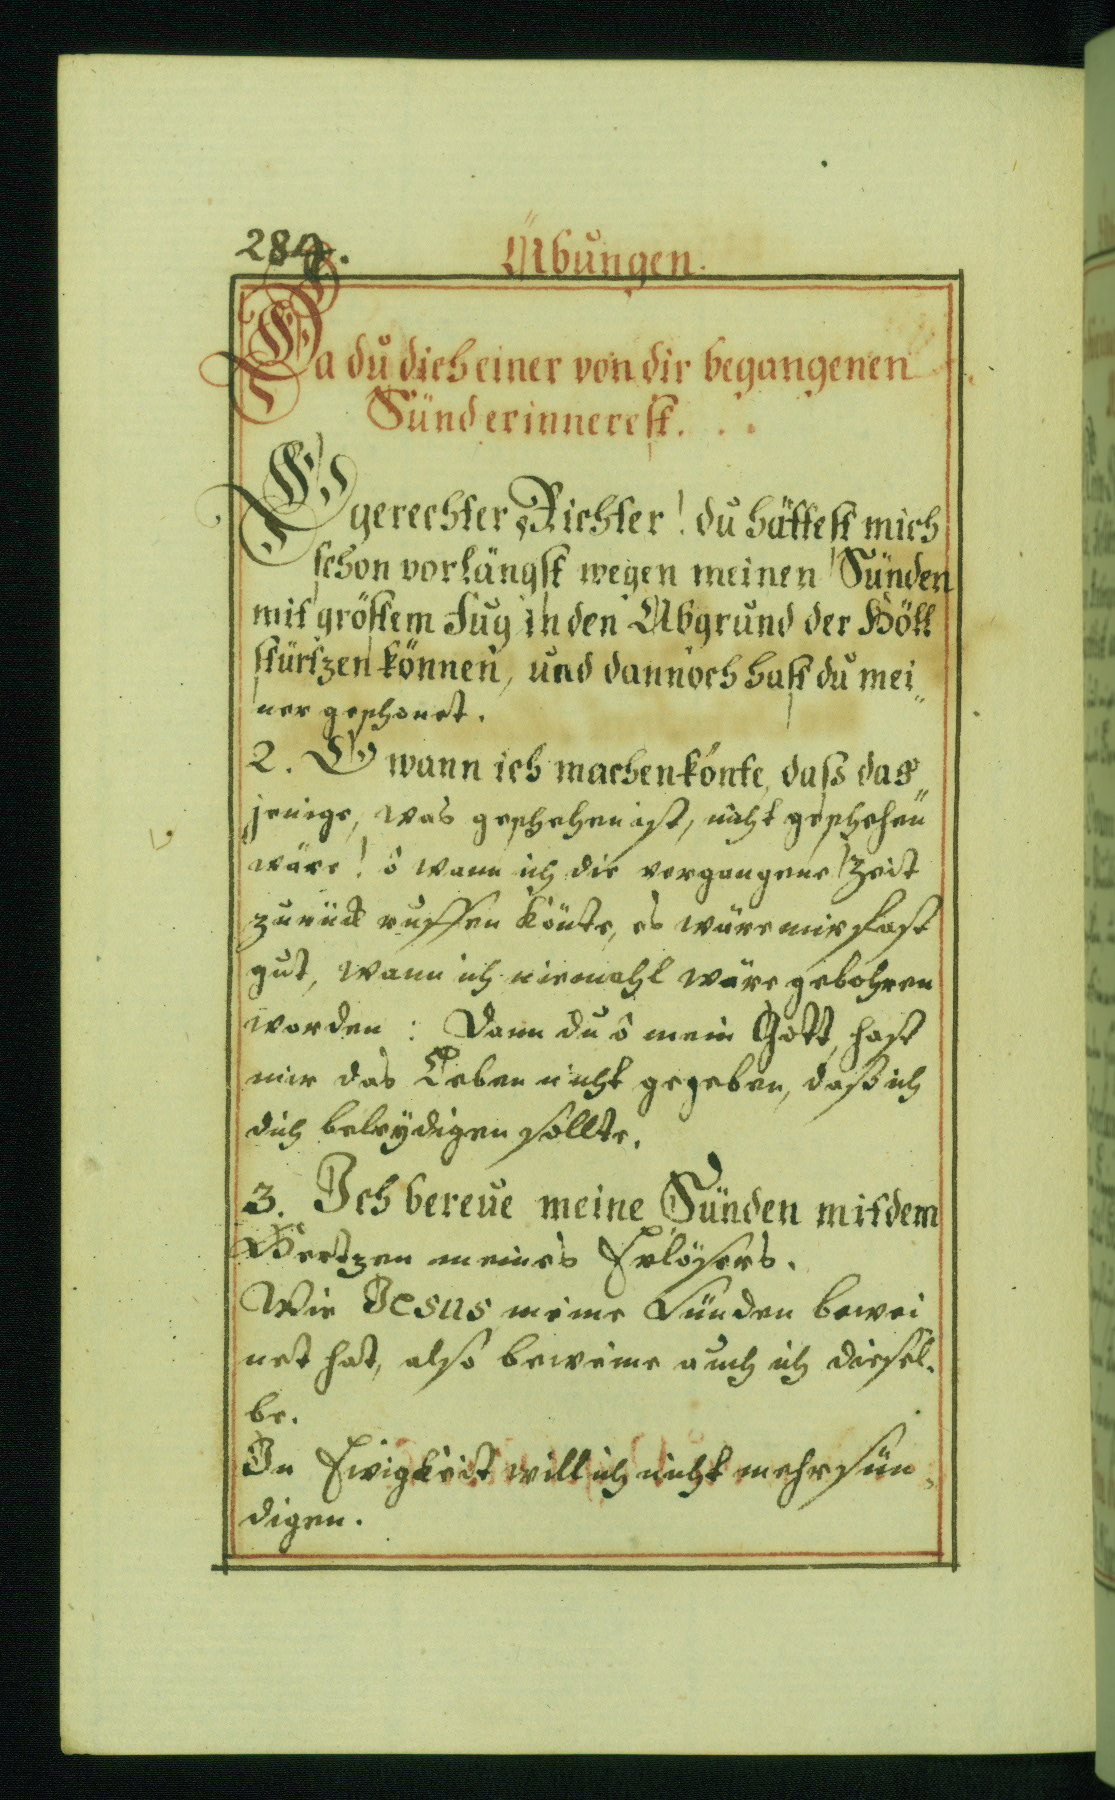 284. Übungen.
Da du dich einer von dir begangenen
Sünd erinnerest. . .
O gerechter Richter! du hättest mich
schon vorlängst wegen meinen Sünden
mit gröstem Fug in den Abgrund der Höll
stürtzen können, und dannoch hast du mei„
ner geschonet.
2. O wann ich machen könte, dass das„
jenige, was geschehen ist, nicht geschehen
wäre! ô wann ich die vergangene Zeit
zurück ruffen könte, es wäre mir fast
gut, wann ich niemahl wäre gebohren
worden: Dann du ô mein Gott, hast
mir das Leben nicht gegeben, daß ich
dich beleydigen sollte.
3. Ich bereue meine Sünden mit dem
Hertzen meines Erlösers.
Wie Jesus meine Sünden bewei
net hat, also beweine auch ich diesel„
be.
In Ewigkeit will ich nicht mehr sün„
digen.